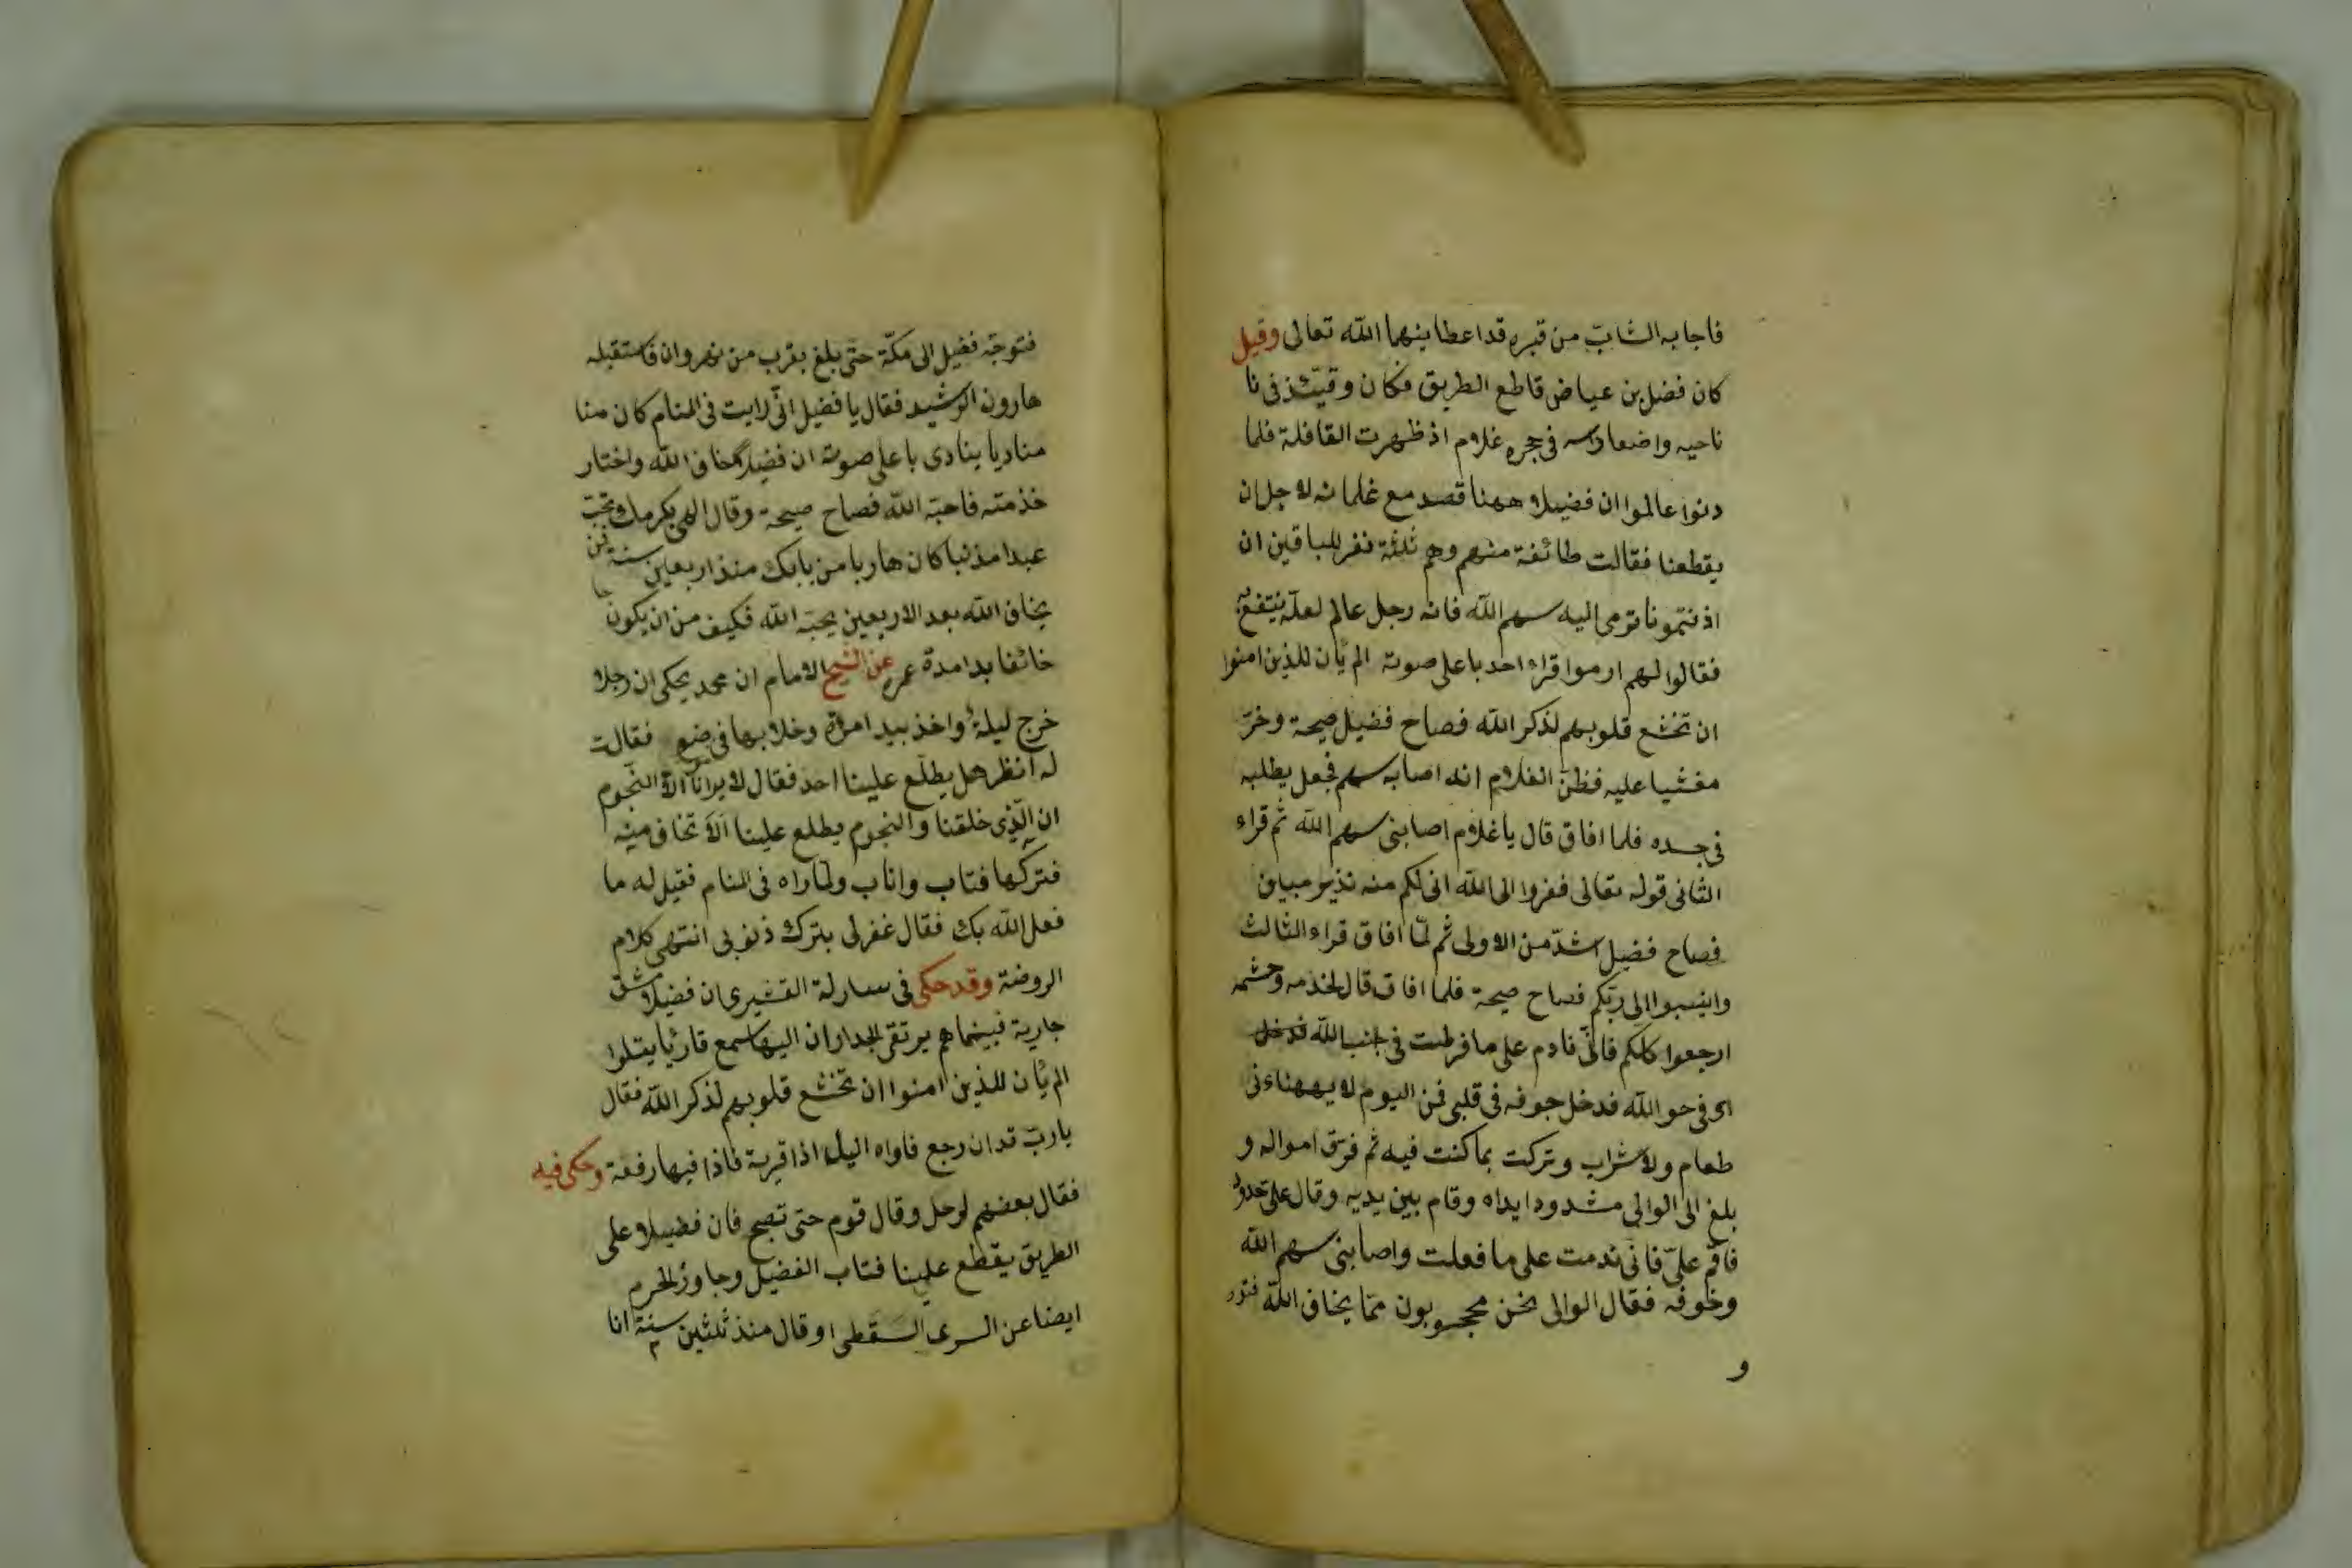 فاجابه الشاب من قبره قد اعطاينهما الله تعالى وقيل
كان فضل بن عياض قاطع الطريق فكان وقيتئذ فى نا
ناحيه واضعا راسه فى حجره غلام اذ ظهرت القافلة فلما
دنوا عالموا ان فضيلا ههنا قصد مع غلمانه لاجل ان
يقطعنا فقالت طائفة منهم وهم ثلثة نفر للباقين ان
اذنتمونا نرمى اليه سهم الله فانه رجل عالم لعله ينتفع به
فقالوا لهم ارموا قراء احد باعلى صوته الم يأن للذين امنوا
ان تخشع قلوبهم لذكر الله فصاح فضيل صيحة وخر
مغشيا عليه فظن الغلام انه اصابه سهم فجعل يطلبه
فى جسده فلما افاق قال يا غلام اصابنى سهم الله ثم قراء
الثانى قوله تعالى ففروا الى الله انى لكم منه نذير مبين
فصاح فضيل اشد من الاولى ثم لما افاق قراء الثالث
وانيبوا الى ربكم فصاح صيحة فلما افاق قال لخذمه وحشمه
ارجعوا كلكم فانى نادم على ما فرطت فى جنب الله فدخل
اى فى حو الله فدخل جوفه فى قلبى فمن اليوم لا يههناءنى
طعام ولا شراب وتركت بما كنت فيه ثم فرق امواله و
بلغ الى الوالى مشدودا يداه وقام بين يديه وقال على حدود
فاقم على فانى ندمت على ما فعلت واصابنى سهم الله
وخوفه فقال الوالى نحن محجوبون مما يخاف الله فتو
و
فتوجه فضيل الى مكة حتى بلغ بقرب من نهروان فاستقبله
هارون الرشيد فقال يا فضيل انى رايت فى المنام كان منا
مناديا ينادى باعلى صوته ان فضيلا خاف الله واختار
خذمته فاحبه الله فصاح صيحة وقال الهى بكرمك تحب
عبدا مذنبا كان هاربا من بابك منذ اربعين سنة فمن
يخاف الله بعد الاربعين يحبه الله فكيف من ان يكون
خائفا بدا مدة عمره عن الشيخ الامام ان محمد يحكى ان رجلا
خرج ليلة واخذ بيد امراة وخلا بها فى موضع فقالت
له انظر هل يطلع علينا احد فقال لا يرانا الا النجوم
ان الذى خلقنا والنجوم يطلع علينا الا تخاف منه
فتركها فتاب واناب ولما راه فى المنام فقيل له ما
فعل الله بك فقال غفر لى بترك ذنوبى انتهى كلام
الروضة وقد حكى فى سارلة القشيرى ان فضيلا عشق
جارية فبينما هم يرتقى الجداران اليها سمع قارئا يتلوا
الم يأن للذين امنوا ان تخشع قلوبهم لذكر الله فقال
يا رب قد ان رجع فاواه اليل اذا قرية فاذا فيها رفقة وحكى فيه
فقال بعضهم لو حل وقال قوم حتى تصبح فان فضيلا على
الطريق يقطع علينا فتاب الفضيل وجاور الحرم
ايضا عن السرى السقطى او قال منذ ثلثين سنة انا